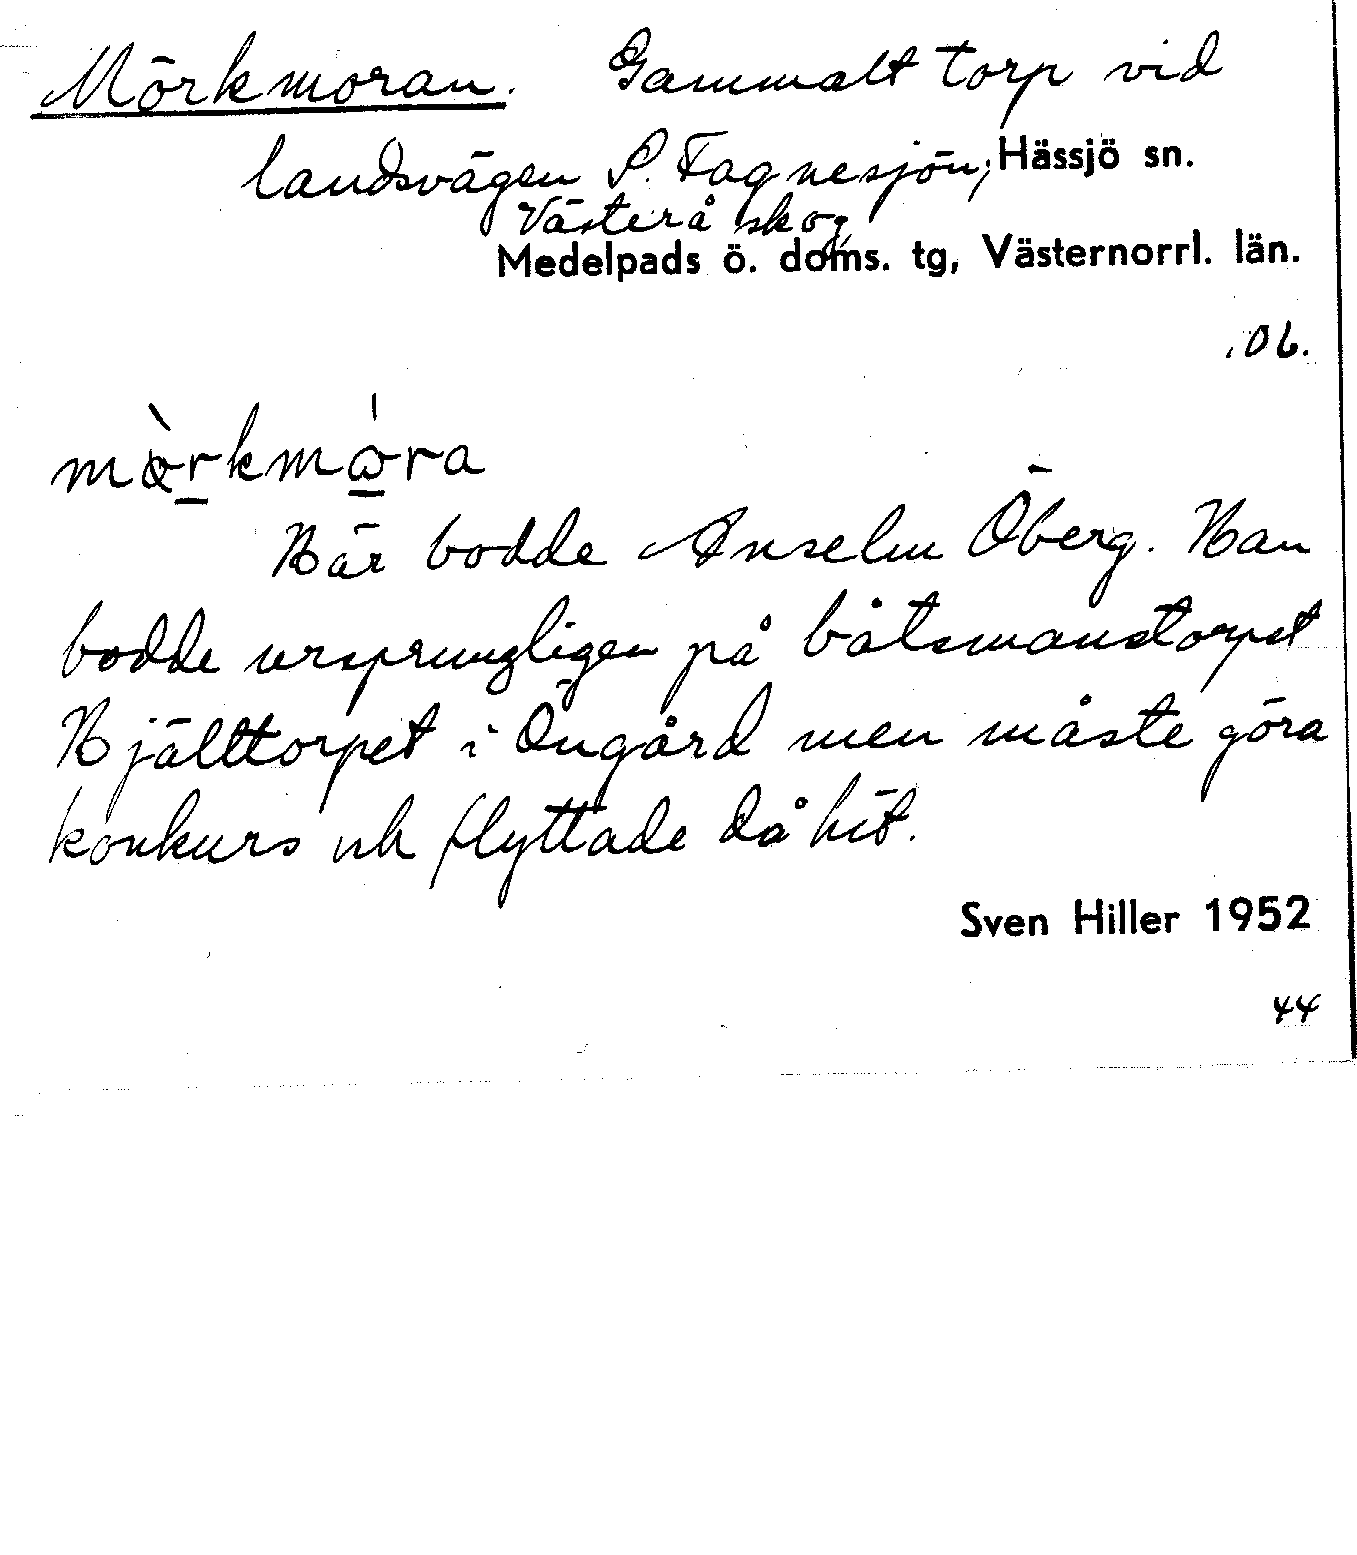 Mörkmoran. Gammalt torp vid
landsvägen S. Fagnesjön, Hässjö sn.
Västerå skog
Medelpads ö. doms. tg, Västernorrl. län.
06.
Här bodde Anselm Öberg. Han
bodde ursprungligen på båtsmanstorpet
Hjälttorpet i Öngård men måste göra
konkurs och flyttade då hit.
Sven Hiller 1952
44